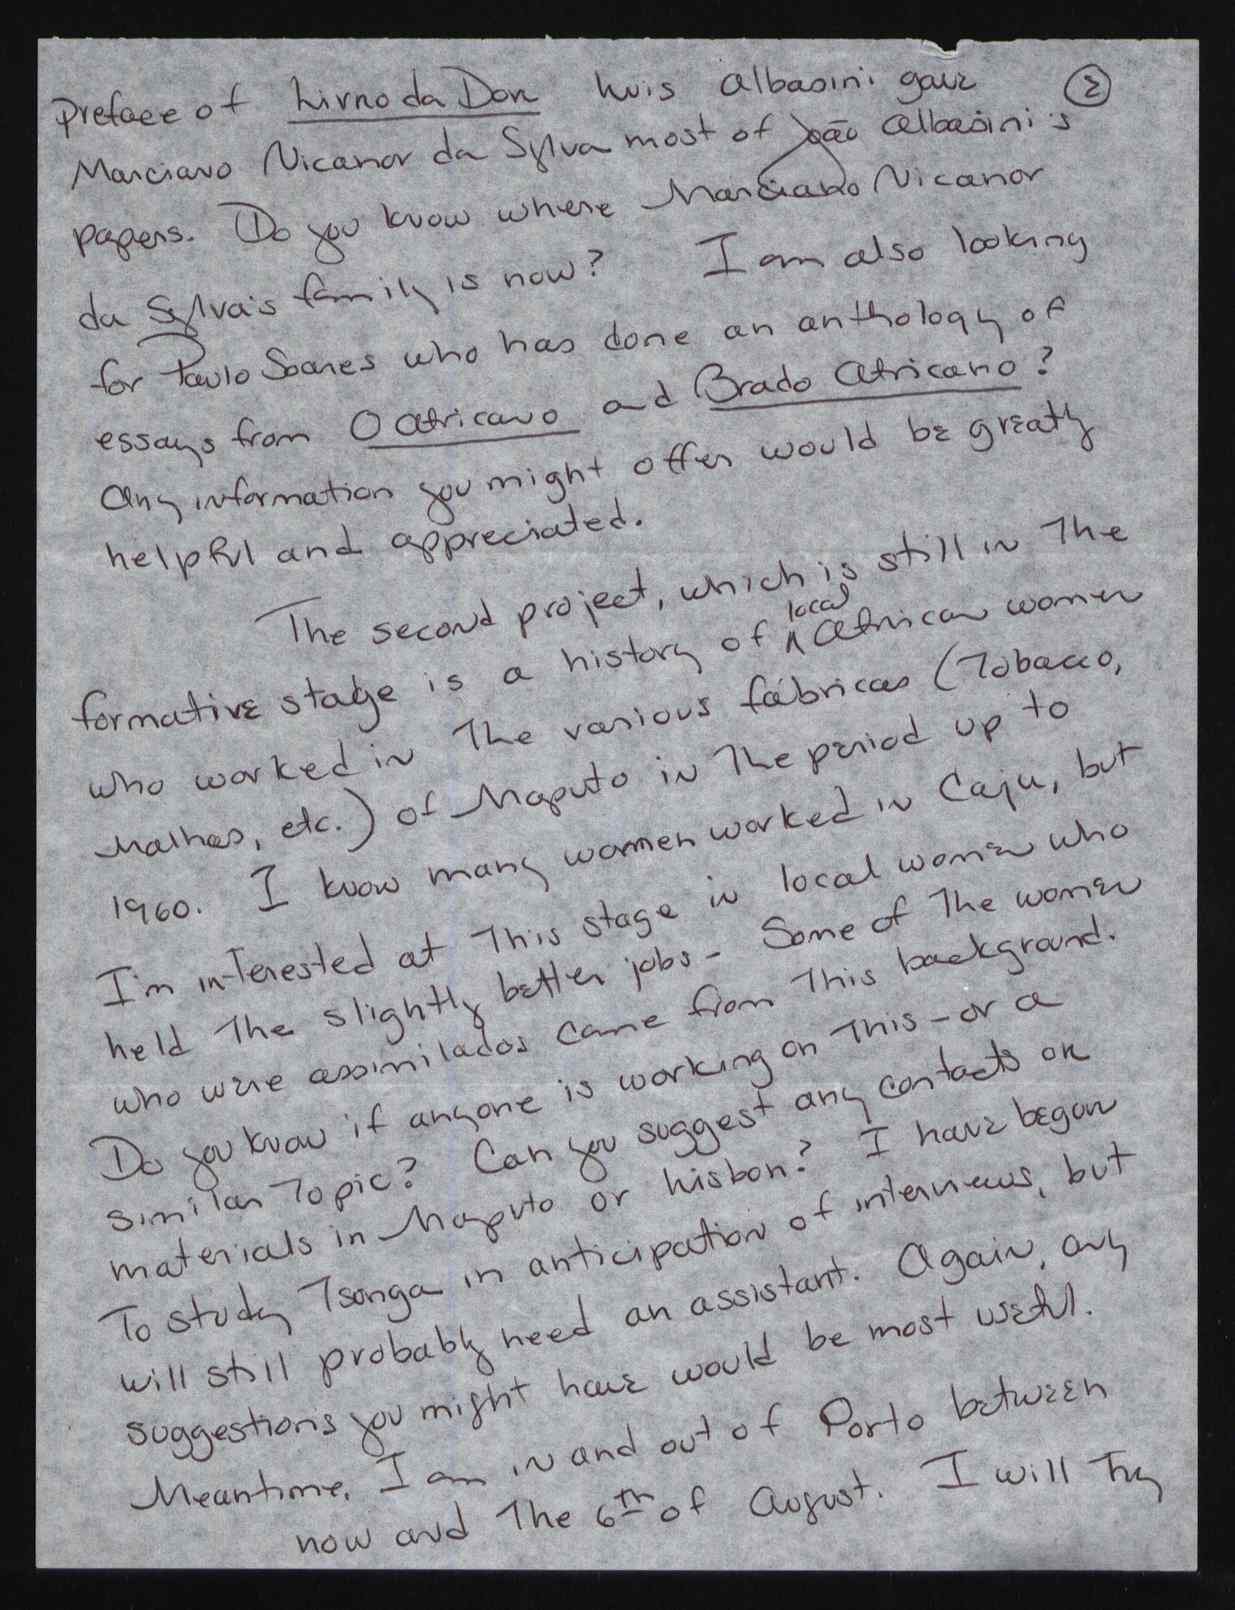 ②
Preface of Livro da Dor Luis Albasini gave
Marciano Nicanor da Sylva most of João Albasini's
papers. Do you know where Marciano Nicanor
da Sylva's family is now? I am also looking
for Paulo Soares who has done an anthology of
essays from O Africano and Brado Africano?
Any information you might offer would be greatly
helpful and appreciated.
The second project, which is still in the
formative stage is a history of local African women
who worked in the various fábricas (Tobacco,
Malhas, etc.) of Maputo in the period up to
1960. I know many women worked in Caju, but
I'm interested at this stage in local women who
held the slightly better jobs - Some of the women
who were assimilados came from this background.
Do you know if anyone is working on this - or a
similar topic? Can you suggest any contacts or
materials in Maputo or Lisbon? I have began
to study Tsonga in anticipation of interviews, but
will still probably need an assistant. Again, any
suggestions you might have would be most useful.
Meantime, I am in and out of Porto between
now and the 6th of August. I will try